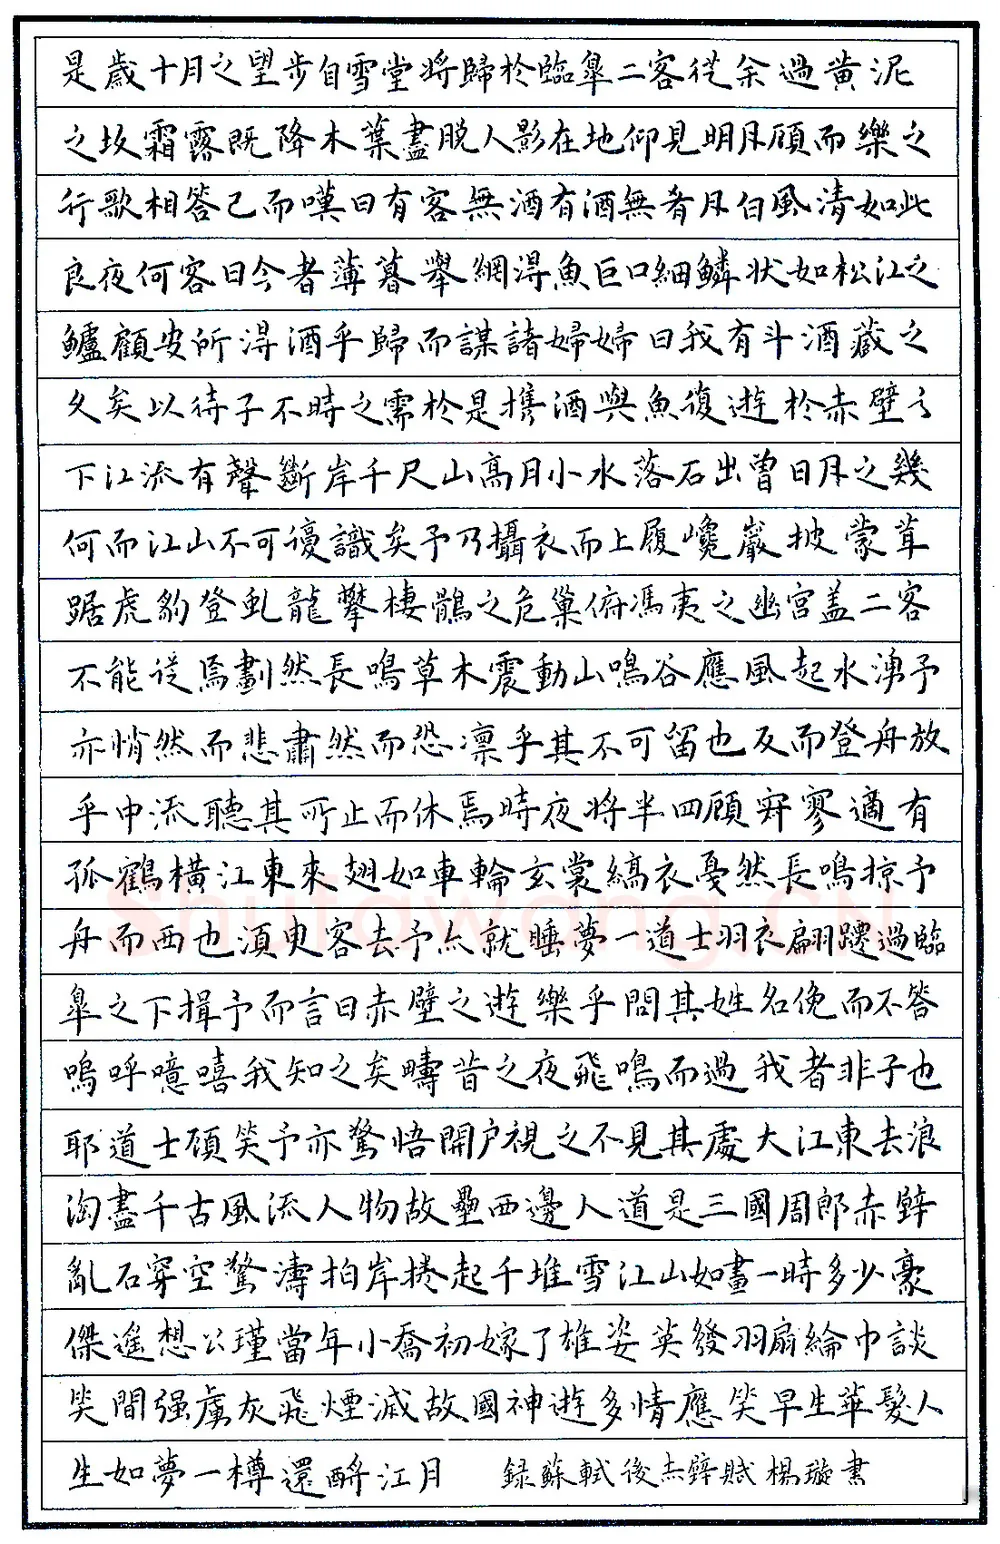 是歲十月之望步自雪堂將歸於臨皋二客從余過黃泥
之坂霜露既降木葉盡脫人影在地仰見明月顧而樂之
行歌相答已而嘆曰有客無酒有酒無肴月白風清如此
良夜何客曰今者薄暮舉網得魚巨口細鱗狀如松江之
鱸顧安所得酒乎歸而謀諸婦婦曰我有斗酒藏之
久矣以待子不時之需於是攜酒與魚復遊於赤壁之
下江流有聲斷岸千尺山高月小水落石出曾日月之幾
何而江山不可復識矣予乃攝衣而上履巉巖披蒙茸
踞虎豹登虬龍攀棲鶻之危巢俯馮夷之幽宮蓋二客
不能從焉劃然長鳴草木震動山鳴谷應風起水湧予
亦悄然而悲肅然而恐凜乎其不可留也反而登舟放
乎中流聽其所止而休焉時夜將半四顧寂寥適有
孤鶴橫江東來翅如車輪玄裳縞衣戛然長鳴掠予
舟而西也須臾客去予亦就睡夢一道士羽衣翩躚過臨
皋之下揖予而言曰赤壁之遊樂乎問其姓名俛而不答
嗚呼噫嘻我知之矣疇昔之夜飛鳴而過我者非子也
耶道士顧笑予亦驚悟開戶視之不見其處大江東去浪
淘盡千古風流人物故壘西邊人道是三國周郎赤壁
亂石穿空驚濤拍岸捲起千堆雪江山如畫一時多少豪
傑遙想公瑾當年小喬初嫁了雄姿英發羽扇綸巾談
笑間强虜灰飛煙滅故國神遊多情應笑早生華髮人
生如夢一樽還酹江月 録蘇軾後赤壁賦楊璇書
Shufawang.CN